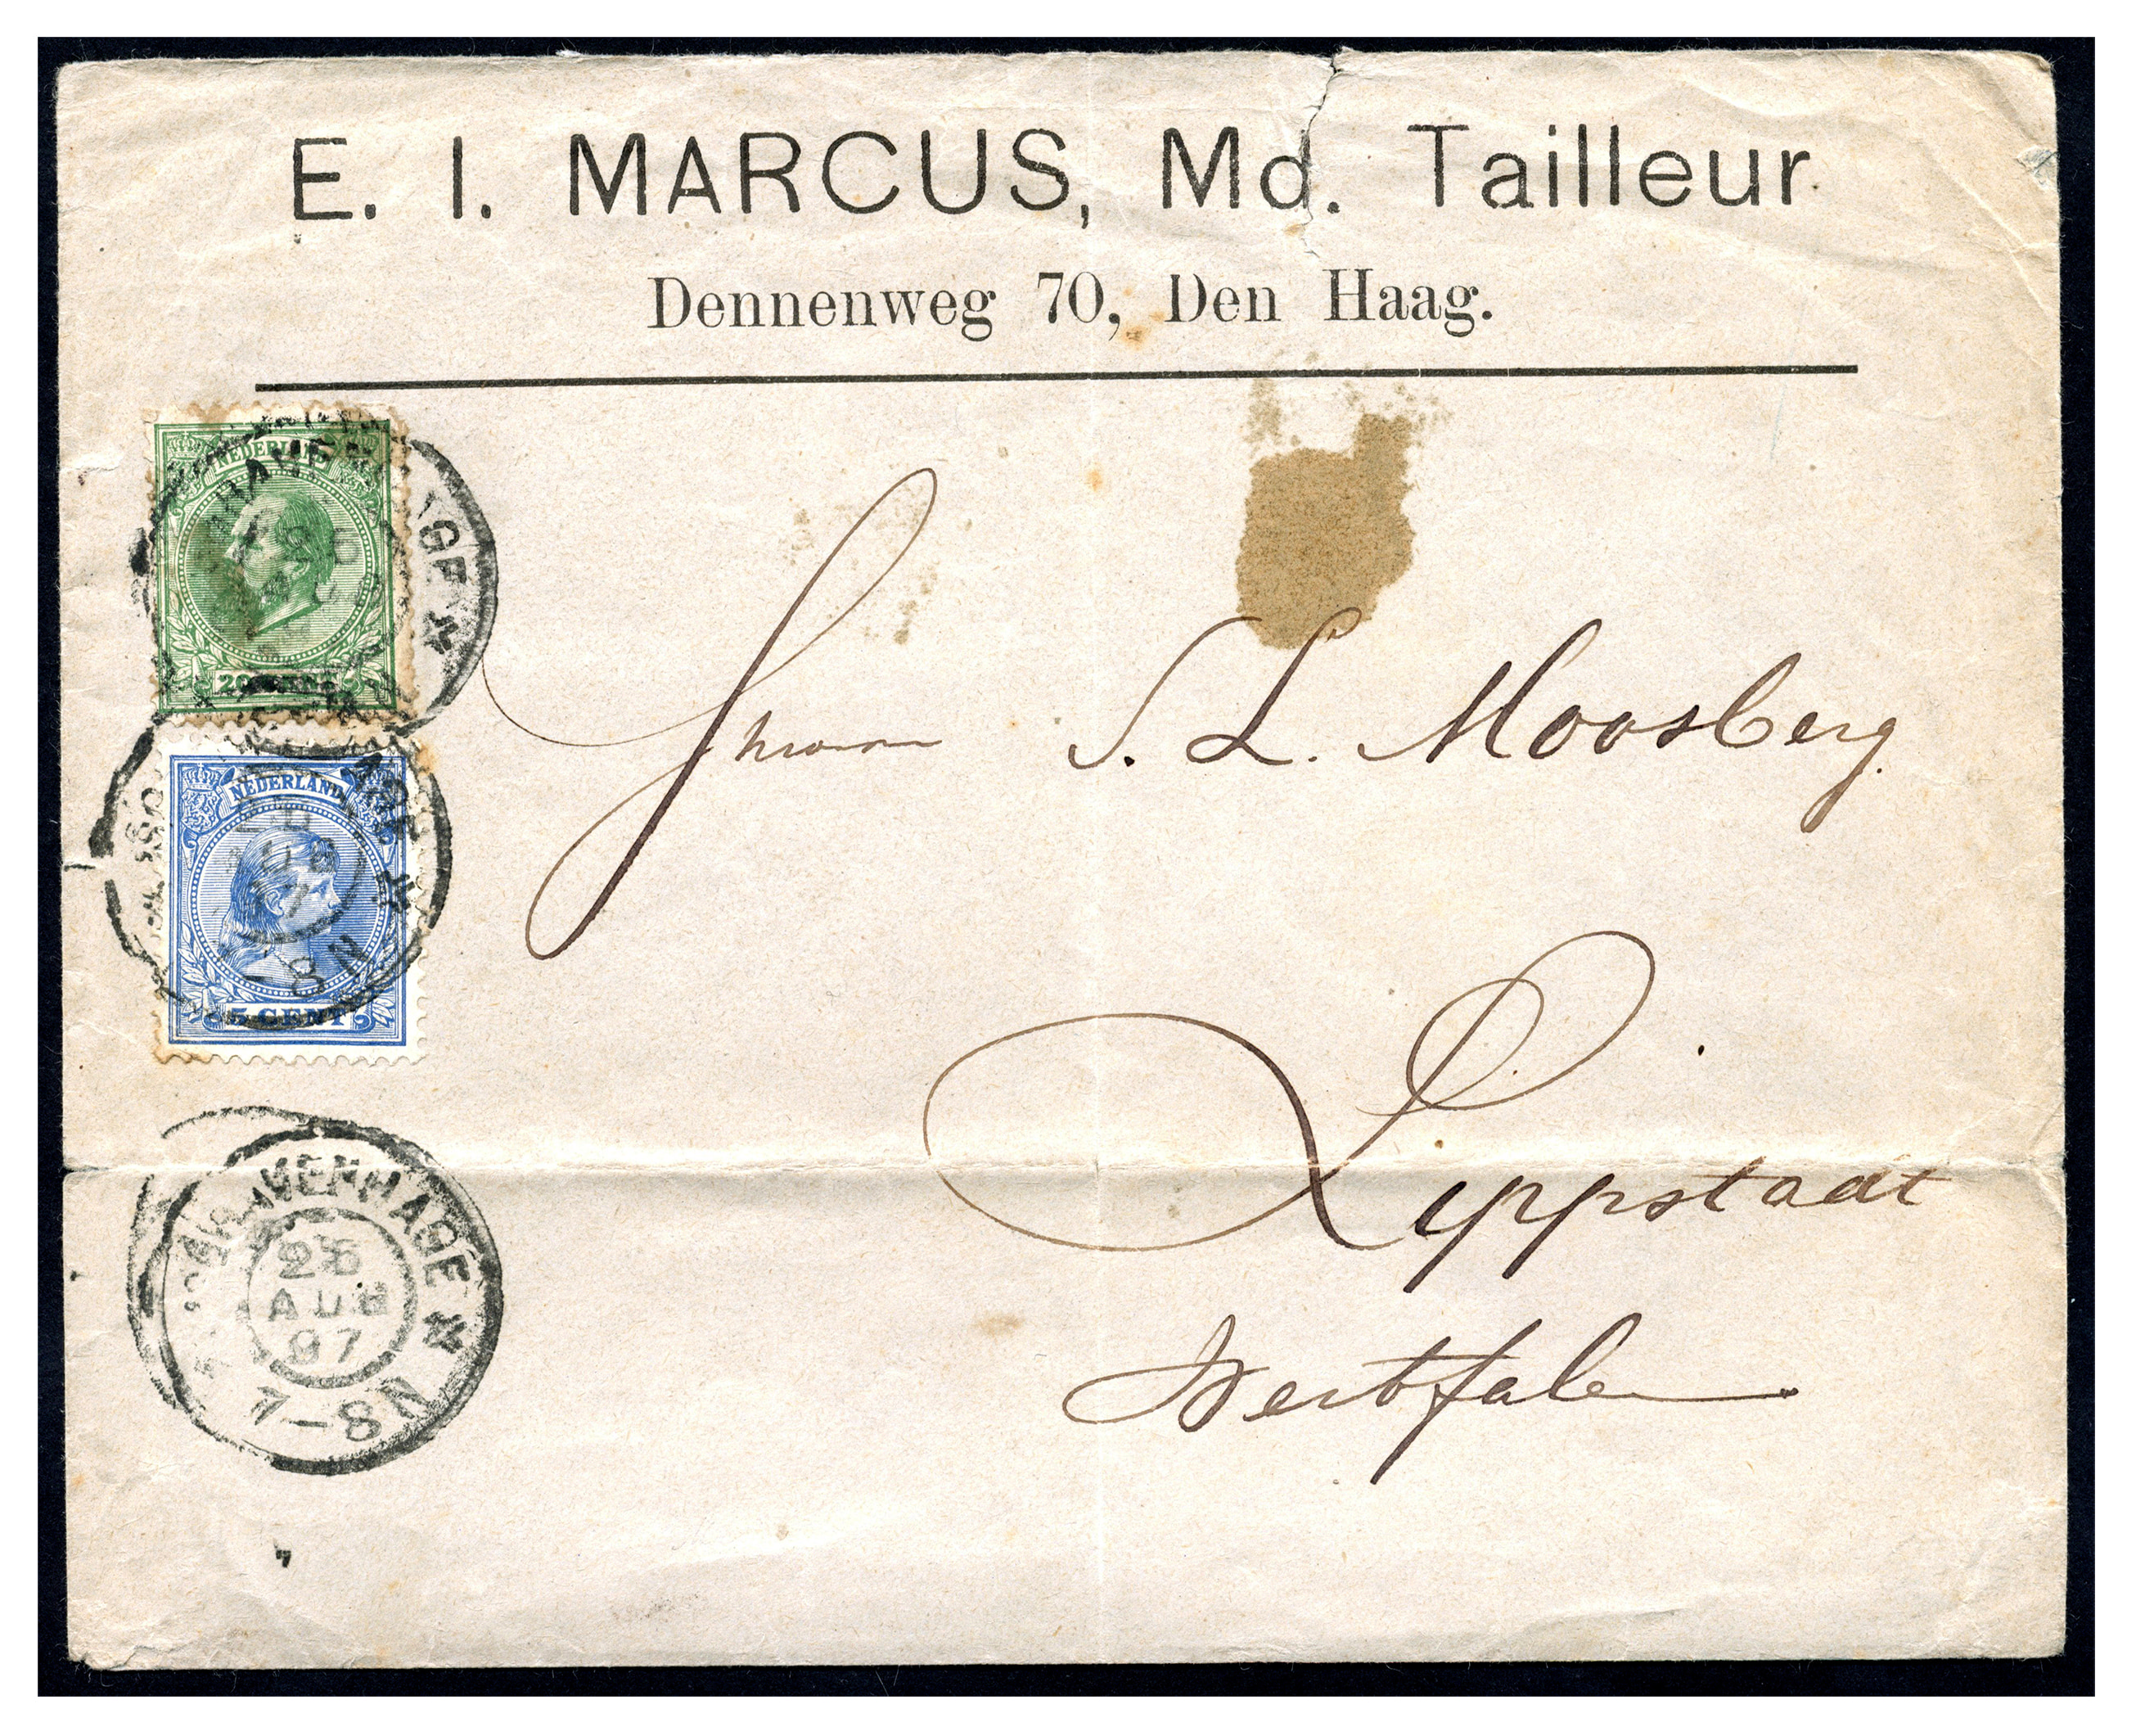 E. I. MARCUS, Md. Tailleur.
Dennenweg 70, Den Haag.
NEDERLAND
20 CENT
NEDERLAND
5 CENT
8 N
S. L. Moosberg.
Lippstadt
Westfalen
'S GRAVENHAGE
AUG
97
7-8N